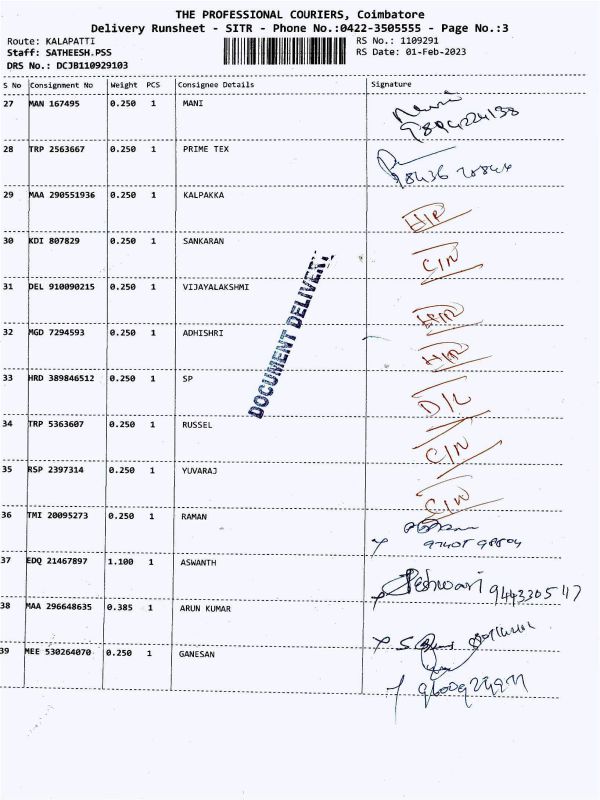 THE PROFESSIONAL COURIERS, Coimbatore
Delivery Runsheet - SITR - Phone No.:0422-3505555 - Page No.:3
Route: KALAPATTI
RS No.: 1109291
Staff: SATHEESH.PSS
RS Date: 01-Feb-2023
DRS No.: DCJB110929103
S No Consignment No Weight PCS Consignee Details Signature
27 MAN 167495 0.250 1 MANI
28 TRP 2563667 0.250 1 PRIME TEX
29 MAA 290551936 0.250 1 KALPAKKA
30 KDI 807829 0.250 1 SANKARAN C/N
31 DEL 910090215 0.250 1 VIJAYALAKSHMI
32 MGD 7294593 0.250 1 ADHISHRI
33 HRD 389846512 0.250 1 SP D/L
34 TRP 5363607 0.250 1 RUSSEL C/N
35 RSP 2397314 0.250 1 YUVARAJ C/N
36 TMI 20095273 0.250 1 RAMAN
37 EDQ 21467897 1.100 1 ASWANTH
38 MAA 296648635 0.385 1 ARUN KUMAR
39 MEE 530264070 0.250 1 GANESAN
DOCUMENT DELIVERY